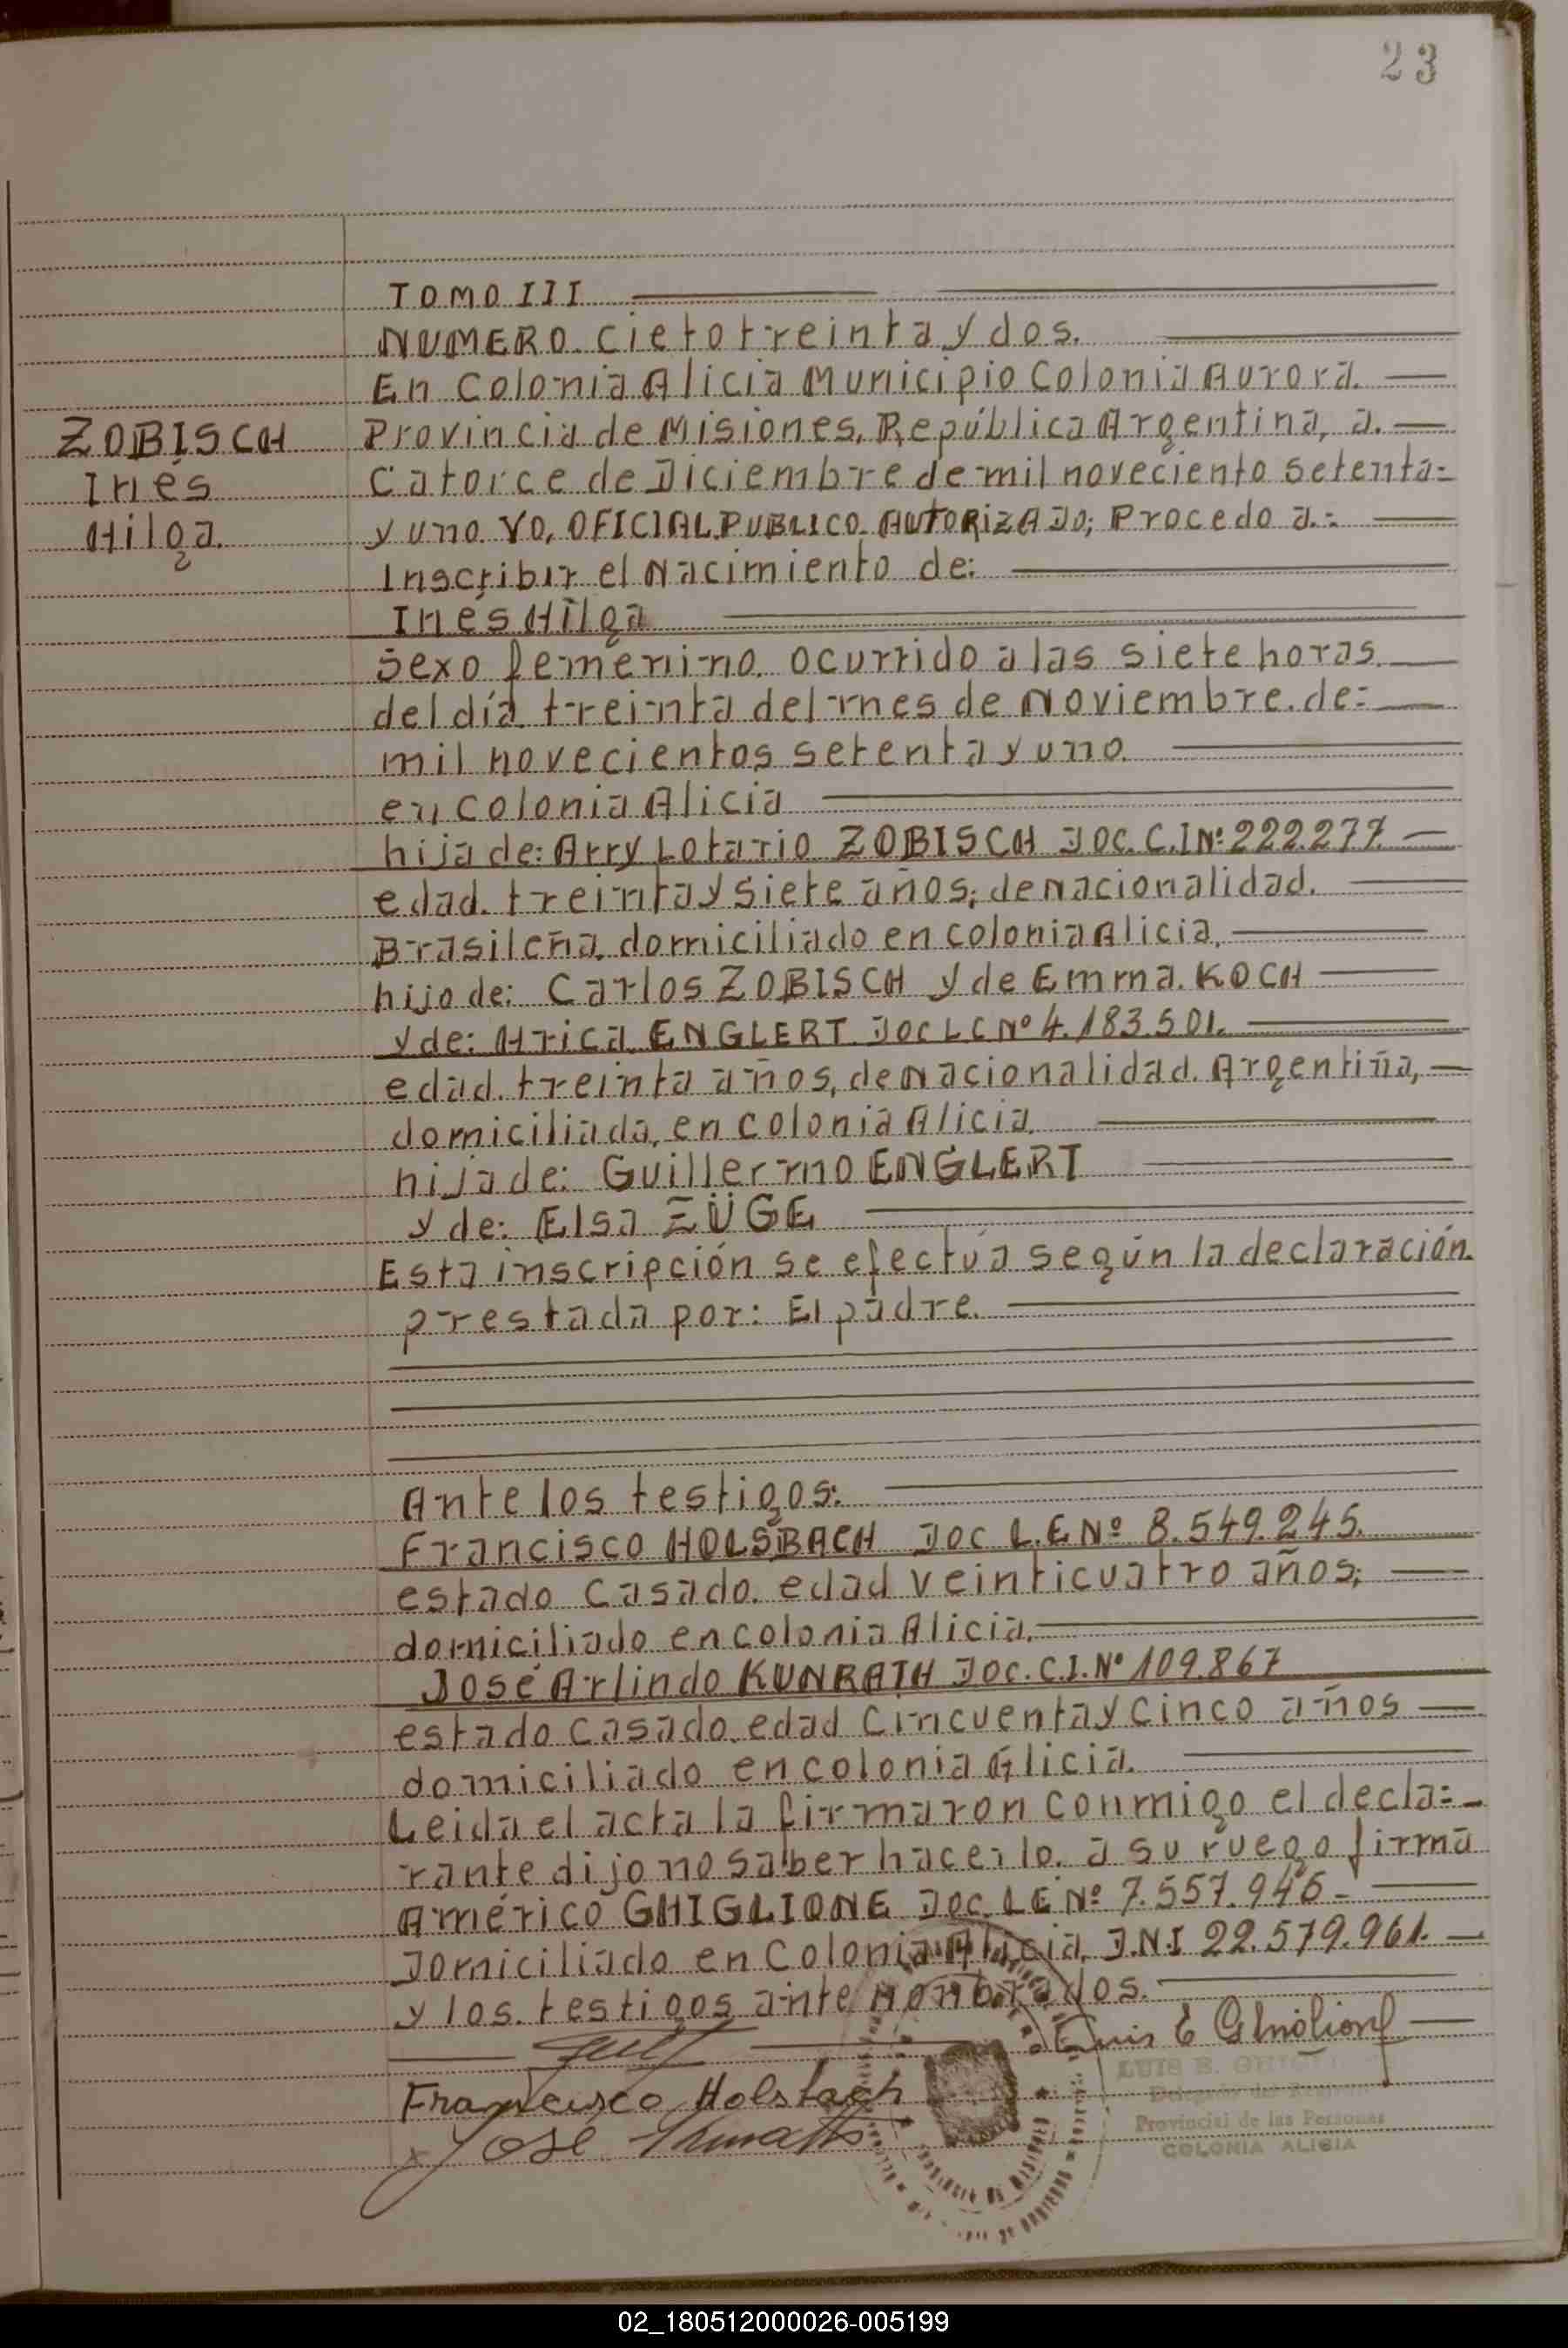 23
TOMO III
NUMERO. cieto treinta y dos.
En Colonia Alicia Municipio Colonia Aurora.
ZOBISCH
Provincia de Misiones, República Argentina, a.
Inés
Catorce de Diciembre de mil noveciento setenta=
Hilga.
y uno. YO, OFICIAL PUBLICO. AUTORIZADO; Procedo a.=
Inscribir el Nacimiento de:
Inés Hilga
sexo femenino. ocurrido a las siete horas.
del día treinta del mes de Noviembre. de=
mil novecientos setenta y uno.
en Colonia Alicia
hija de: Arry Lotario ZOBISCH DOC. C.I Nº 222.277.
edad. treinta y siete años; de nacionalidad.
Brasileña. domiciliado en colonia Alicia,
hijo de: Carlos ZOBISCH y de Emma. KOCH
y de: Hrica ENGLERT DOC L C Nº 4.183.501.
edad. treinta años, de nacionalidad. Argentiña,
domiciliada, en colonia Alicia.
hija de: Guillermo ENGLERT
y de: Elsa ZÜGE
Esta inscripción se efectúa según la declaración.
prestada por: El padre.
Ante los testigos:
Francisco HOLSBACH DOC L.E Nº 8.549.245.
estado casado. edad veinticuatro años;
domiciliado en colonia Alicia.
José Arlindo KUNRATH DOC. C.I. Nº 109.867
estado casado. edad cincuenta y cinco años
domiciliado en colonia Alicia.
Leida el acta la firmaron conmigo el decla=
rante dijo no saber hacerlo. a su ruego firma
Américo GHIGLIONE DOC. LE Nº 7.557.946-
Domiciliado en Colonia Alicia, D.N.I 22.579.961.
y los testigos ante Nombrados.
Luis E Ghiglione
LUIS E.
Francisco Holsbach
Provincial de las Personas
José
COLONIA ALICIA
02_180512000026-005199